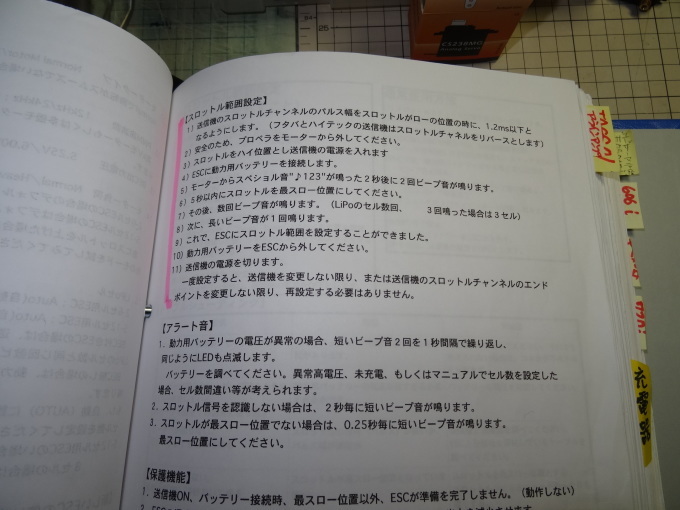 【スロットル範囲設定】
1）送信機のスロットルチャンネルのパルス幅をスロットルがローの位置の時に、1.2ms以下と
なるようにします。（フタバとハイテックの送信機はスロットルチャネルをリバースとします）
2）安全のため、プロペラをモーターから外してください。
3）スロットルをハイ位置とし送信機の電源を入れます
4）ESCに動力用バッテリーを接続します。
5）モーターからスペショル音"♪123"が鳴った2秒後に2回ビープ音が鳴ります。
6）5秒以内にスロットルを最スロー位置にしてください。
7）その後、数回ビープ音が鳴ります。（LiPoのセル数回、 3回鳴った場合は3セル）
8）次に、長いビープ音が1回鳴ります。
9）これで、ESCにスロットル範囲を設定することができました。
10）動力用バッテリーをESCから外してください。
11）送信機の電源を切ります。
一度設定すると、送信機を変更しない限り、または送信機のスロットルチャンネルのエンド
ポイントを変更しない限り、再設定する必要はありません。
【アラート音】
1．動力用バッテリーの電圧が異常の場合、短いビープ音2回を1秒間隔で繰り返し、
同じようにLEDも点滅します。
バッテリーを調べてください。異常高電圧、未充電、もしくはマニュアルでセル数を設定した
場合、セル数間違い等が考えられます。
2．スロットル信号を認識しない場合は、2秒毎に短いビープ音が鳴ります。
3．スロットルが最スロー位置でない場合は、0.25秒毎に短いビープ音が鳴ります。
最スロー位置にしてください。
【保護機能】
1．送信機ON、バッテリー接続時、最スロー位置以外、ESCが準備を完了しません。（動作しない）
充電器